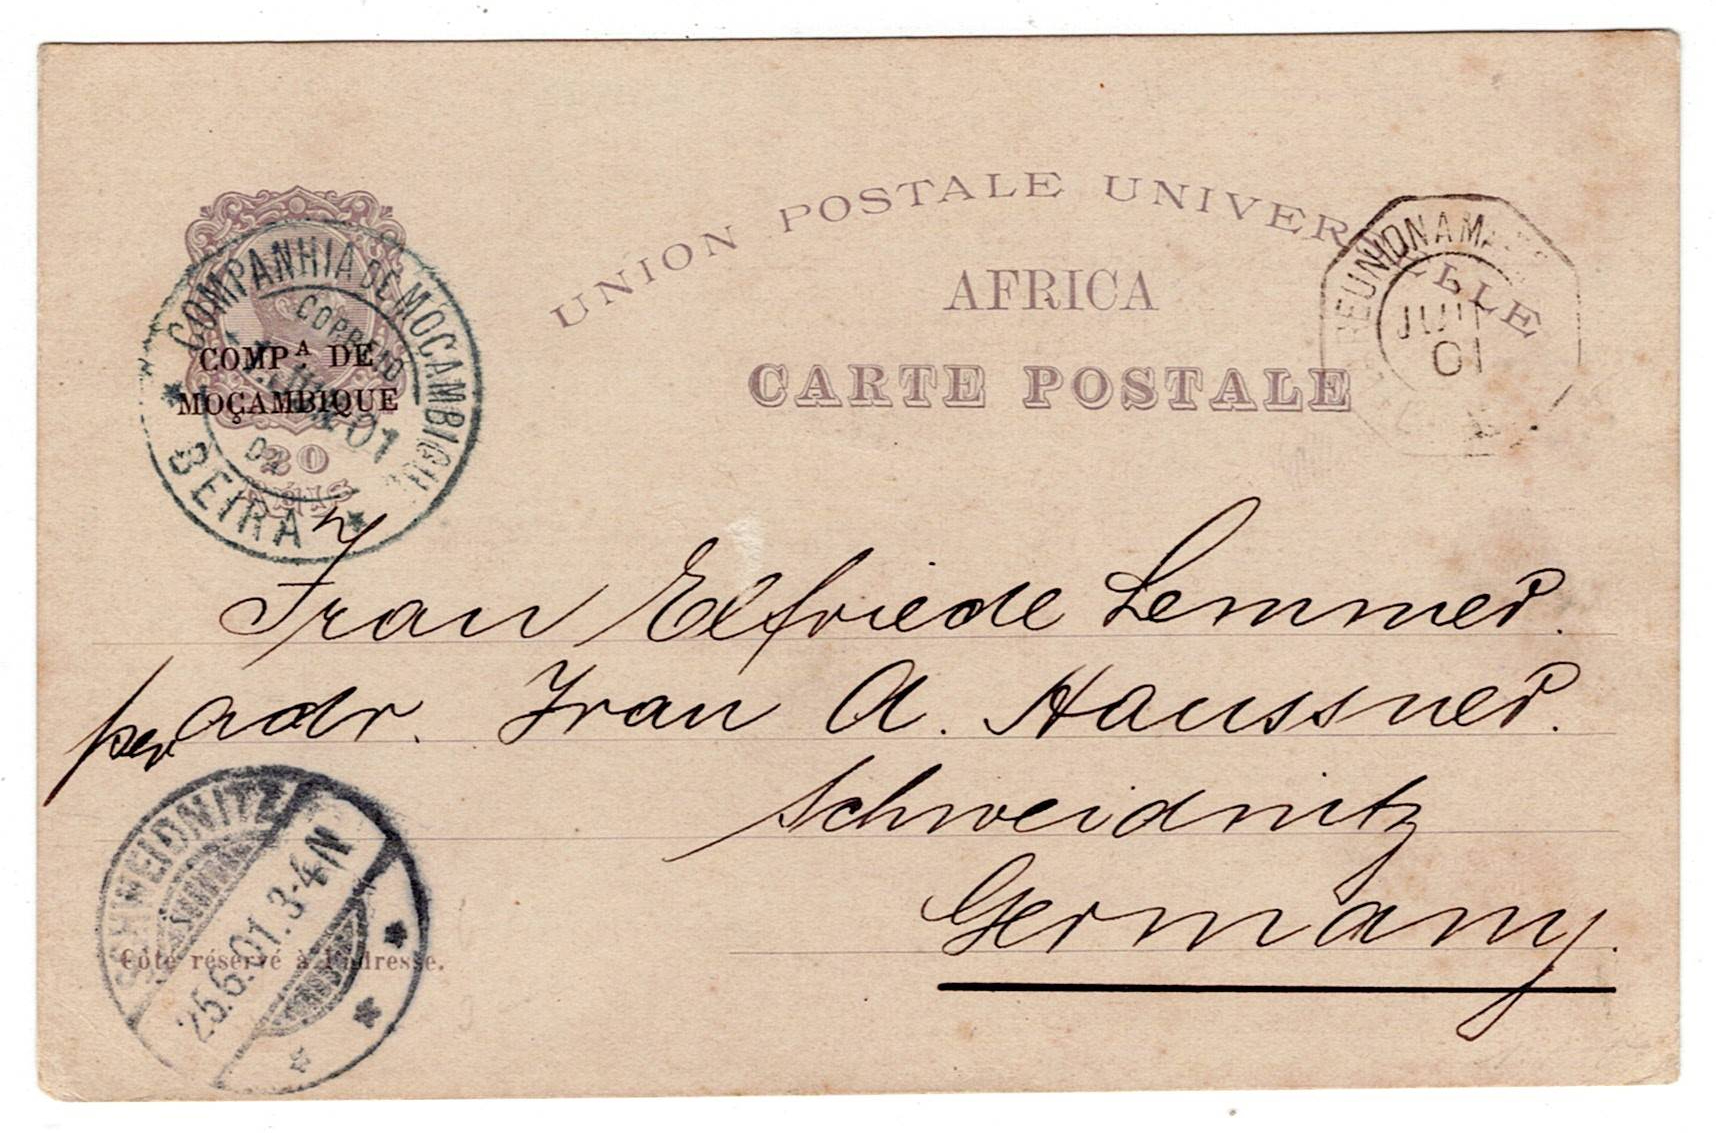 UNION POSTALE UNIVERSELLE
AFRICA
CARTE POSTALE
COMPANHIA DE MOÇAMBIQUE
CORREIO
01
BEIRA
COMPᴬ DE
MOÇAMBIQUE
20
RÉIS
REUNION A MAR
JUIN
01
Frau Elfriede Lemmer.
per adr. Frau A. Haussner.
Schweidnitz
Germany.
SCHWEIDNITZ
25.6.01.3-4N
Côté réservé à l'adresse.